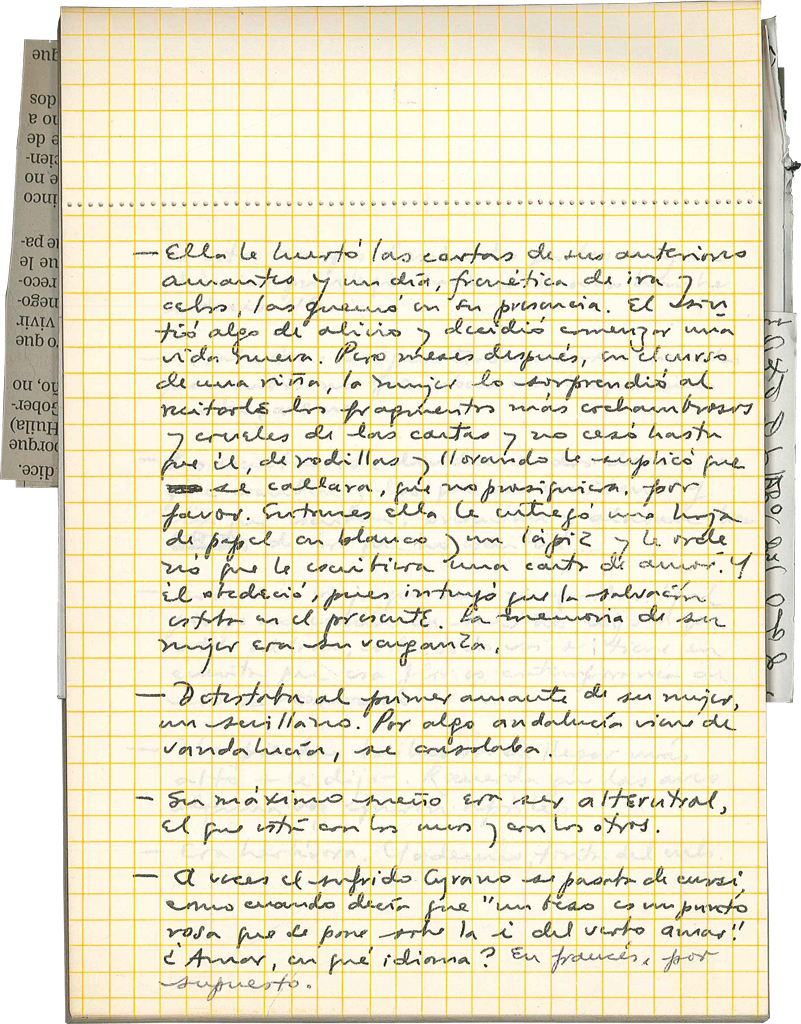 — Ella le hurtó las cartas de sus anteriores
amantes y un día, frenética de ira y
celos, las quemó en su presencia. El sin
tió algo de alivio y decidió comenzar una
vida nueva. Pero meses después, en el curso
de una riña, la mujer lo sorprendió al
recitarle los fragmentos más cochambrosos
y crueles de las cartas y no cesó hasta
que él, de rodillas y llorando le suplicó que
se callara, que no prosiguiera, por
favor. Entonces ella le entregó una hoja
de papel en blanco y un lápiz y le orde
nó que le escribiera una carta de amor. Y
él obedeció, pues intuyó que la salvación
estaba en el presente. La memoria de su
mujer era su venganza.
— Detestaba al primer amante de su mujer,
un sevillano. Por algo andalucía viene de
vandalucía, se consolaba.
— Su máximo sueño era ser alterutral,
el que está con los unos y con los otros.
— A veces el sufrido Cyrano se pasaba de cursi,
como cuando decía que "un beso es un punto
rosa que se pone sobre la i del verbo amar".
¿Amar, en qué idioma? En francés, por
supuesto.
que
dos
no a
e de
cien-
e no
inco
ue pa-
que le
reco-
nego-
vivir
ro que
ño, no
Gober-
Huila)
porque
dice.